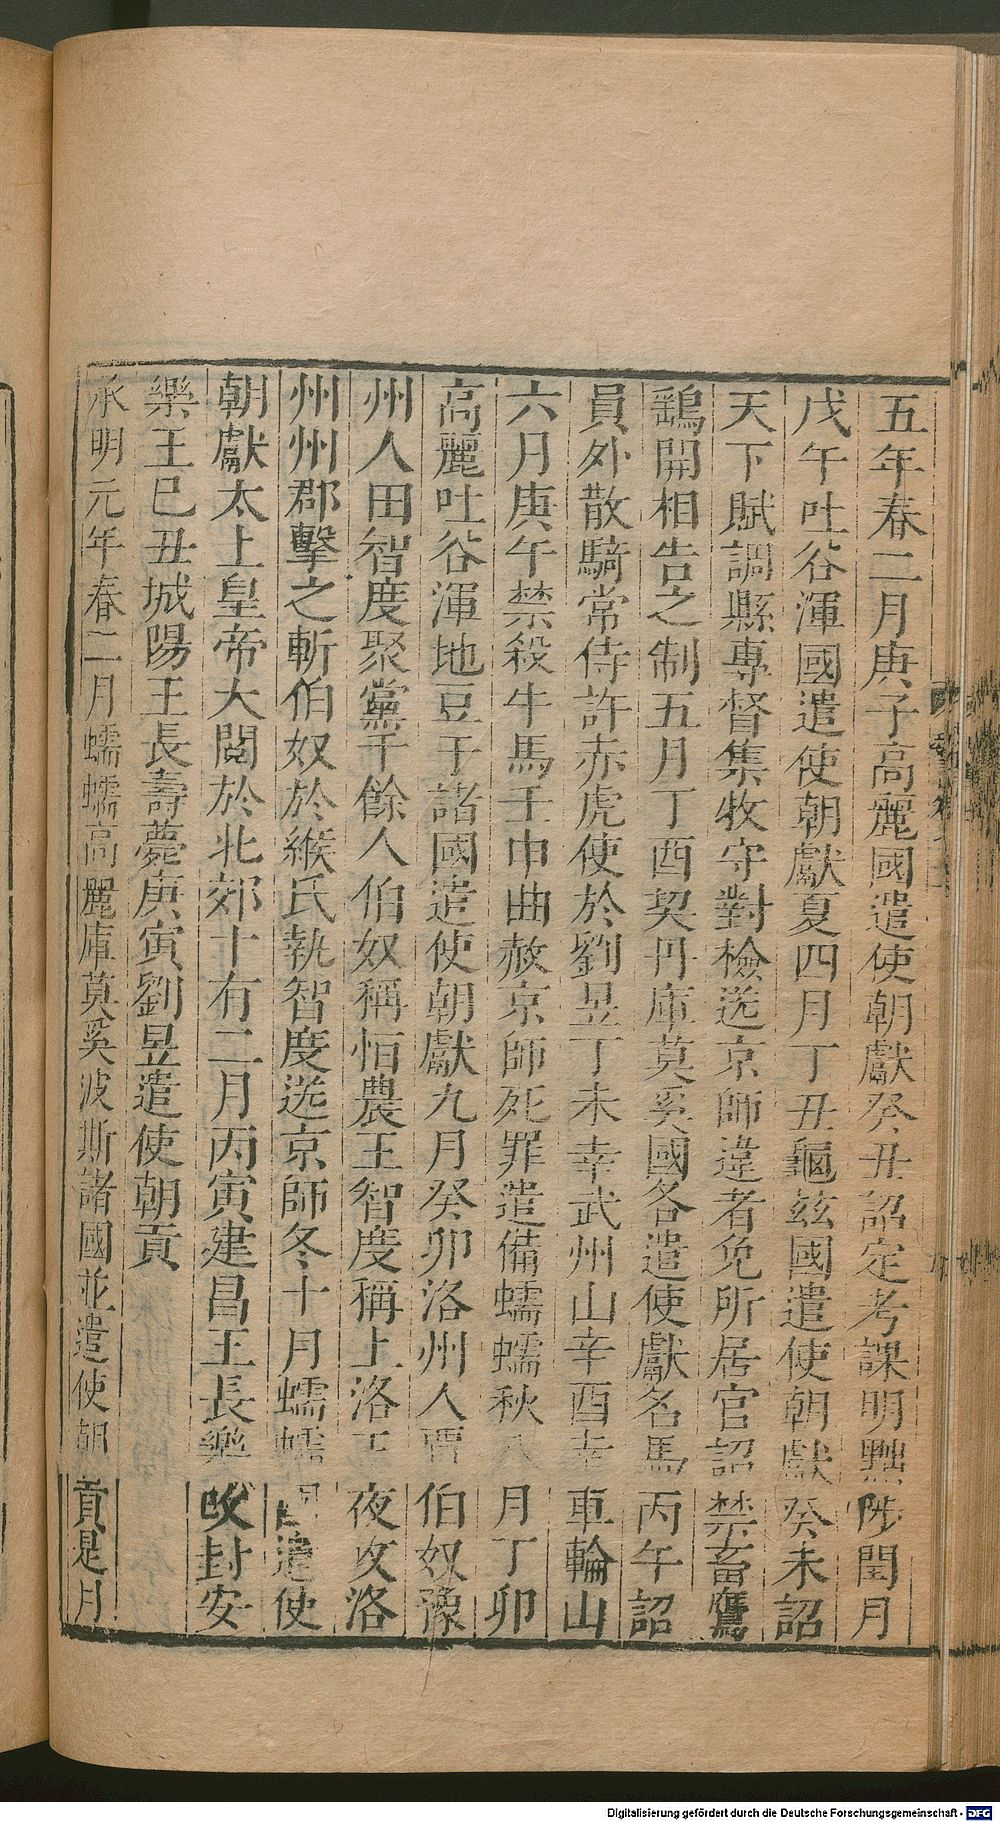 五年春二月庚子高麗國遣使朝獻癸丑詔定考課明黜陟閏月
戊午吐谷渾國遣使朝獻夏四月丁丑龜玆國遣使朝獻癸未詔
天下賦調縣專督集牧守對檢送京師違者免所居官詔禁畜鷹
鷂開相告之制五月丁酉契丹庫莫奚國各遣使獻名馬丙午詔
員外散騎常侍許赤虎使於劉昱丁未幸武州山辛酉幸車輪山
六月庚午禁殺牛馬壬申曲赦京師死罪遣備蠕蠕秋八月丁卯
高麗吐谷渾地豆于諸國遣使朝獻九月癸卯洛州人賈伯奴豫
州人田智度聚黨千餘人伯奴稱恒農王智度稱上洛王夜攻洛
州州郡擊之斬伯奴於緱氏執智度送京師冬十月蠕蠕國遣使
朝獻太上皇帝大閱於北郊十有二月丙寅建昌王長樂改封安
樂王巳丑城陽王長壽薨庚寅劉昱遣使朝貢
承明元年春二月蠕蠕高麗庫莫奚波斯諸國並遣使朝貢是月
Digitalisierung gefördert durch die Deutsche Forschungsgemeinschaft - DFG